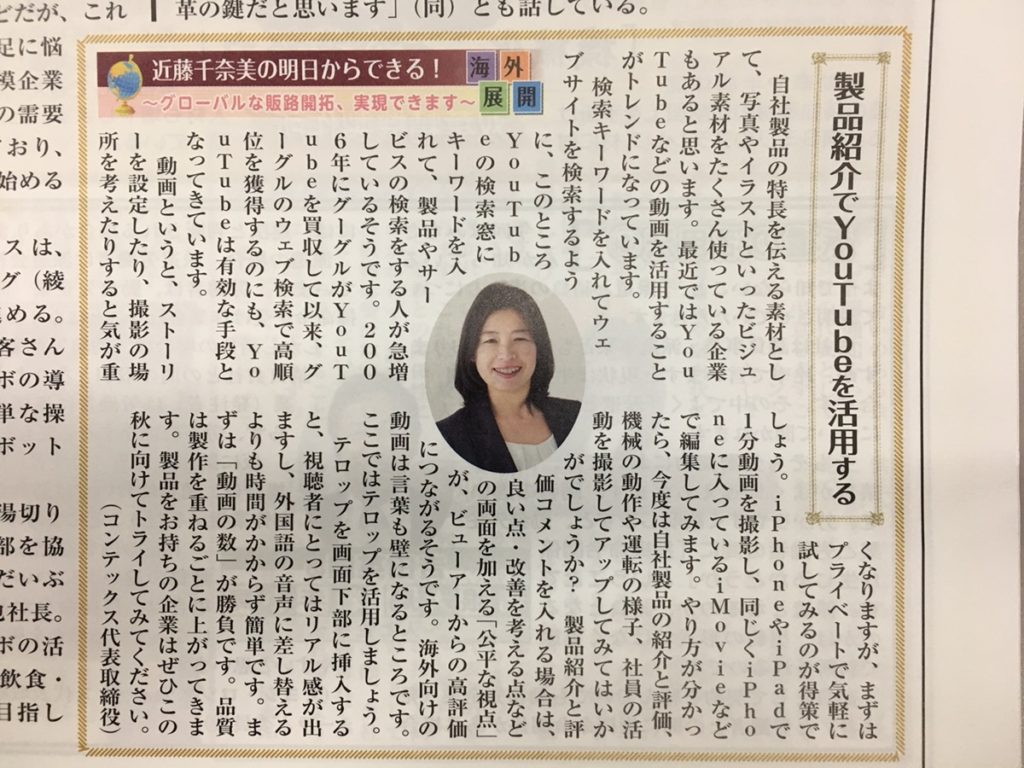 革の鍵だと思います」(同)とも話している。
製品紹介でYouTubeを活用する
近藤千奈美の明日からできる!
海外
展開
〜グローバルな販路開拓、実現できます〜
自社製品の特長を伝える素材とし
て、写真やイラストといったビジュ
アル素材をたくさん使っている企業
もあると思います。最近ではYou
Tubeなどの動画を活用すること
がトレンドになっています。
検索キーワードを入れてウェ
ブサイトを検索するよう
に、このところ
YouTub
eの検索窓に
キーワードを入
れて、製品やサー
ビスの検索をする人が急増
しているそうです。200
6年にグーグルがYouT
ubeを買収して以来、グ
ーグルのウェブ検索で高順
位を獲得するのにも、Yo
uTubeは有効な手段と
なってきています。
動画というと、ストーリ
ーを設定したり、撮影の場
所を考えたりすると気が重
くなりますが、まずは
プライベートで気軽に
試してみるのが得策で
しょう。iPhoneやiPadで
1分動画を撮影し、同じくiPho
neに入っているiMovieなど
で編集してみます。やり方が分かっ
たら、今度は自社製品の紹介と評価、
機械の動作や運転の様子、社員の活
動を撮影してアップしてみてはいか
がでしょうか? 製品紹介と評
価コメントを入れる場合は、
良い点・改善を考える点など
の両面を加える「公平な視点」
が、ビューアーからの高評価
につながるそうです。海外向けの
動画は言葉も壁になるところです。
ここではテロップを活用しましょう。
テロップを画面下部に挿入する
と、視聴者にとってはリアル感が出
ますし、外国語の音声に差し替える
よりも時間がかからず簡単です。ま
ずは「動画の数」が勝負です。品質
は製作を重ねるごとに上がってきま
す。製品をお持ちの企業はぜひこの
秋に向けてトライしてみてください。
(コンテックス代表取締役)
どだが、これ
足に悩
模企業
の需要
おり、
始める
スは、
グ(綾
める。
客さん
ボの導
単な操
ボット
湯切り
部を協
だいぶ
社長。
ボの活
飲食・
目指し